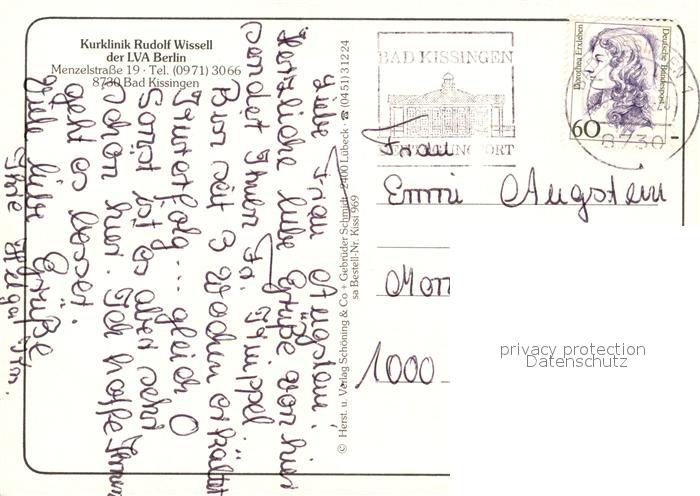 Kurklinik Rudolf Wissell
der LVA Berlin
Menzelstraße 19 · Tel. (0971) 3066
8730 Bad Kissingen
Liebe Frau Augstein!
Herzliche liebe Grüße von hier
sendet Ihnen Fr.
Bin seit 3 Wochen erkältet
gleich 0
Sonst ist es aber sehr
schön hier. Ich hoffe Ihnen
geht es besser.
Viele liebe Grüße
Ihre Helga
© Herst. u. Verlag Schöning & Co + Gebrüder Schmidt · 2400 Lübeck · ☎ (0451) 3 12 24
sa Bestell-Nr. Kissi 969
BAD KISSINGEN
Dorothea Erxleben
Deutsche Bundespost
60
8730
Frau
Emmi Augstein
Mom
1000
privacy protection
Datenschutz